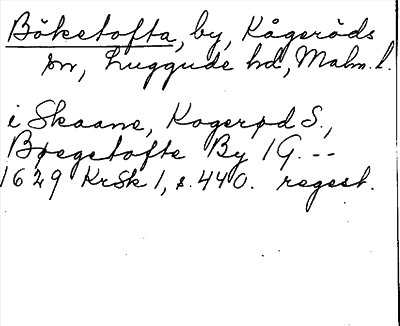 Böketofta, by, Kågeröds
sn, Luggude hd, Malm. l.
i Skaane, Kogerød S.,
Bøgetofte By 1G. --
1629 KrSk 1, s. 440. regest.